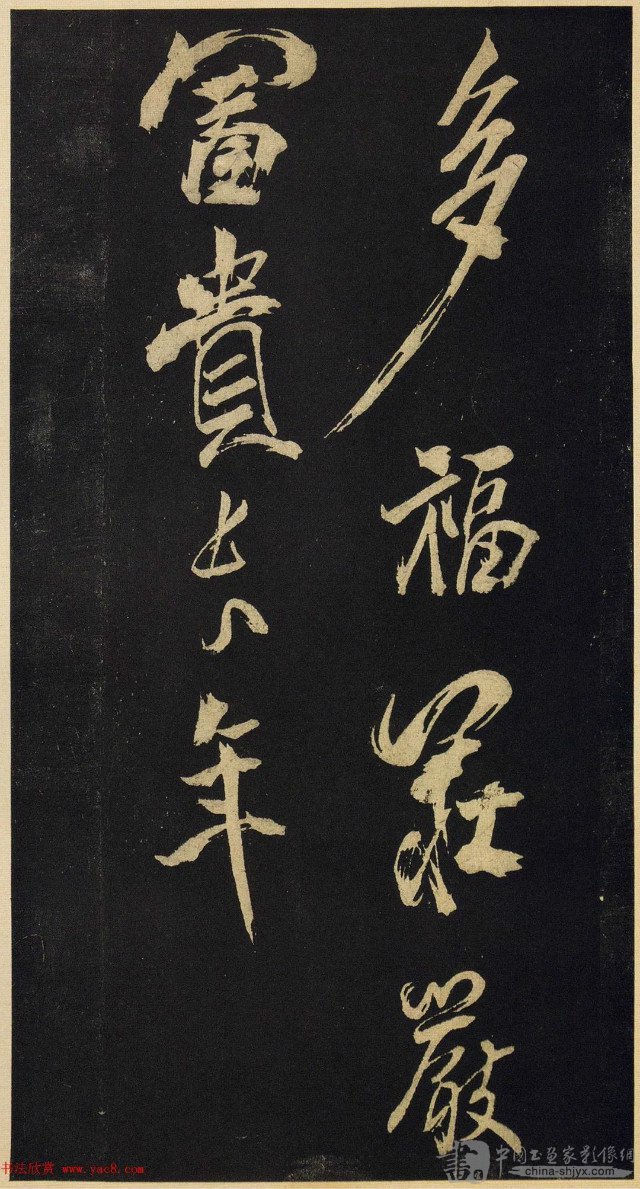 多福莊嚴
富貴長年
书法欣赏 www.yac8.com
中国书画家影像網
china-shjyx.com